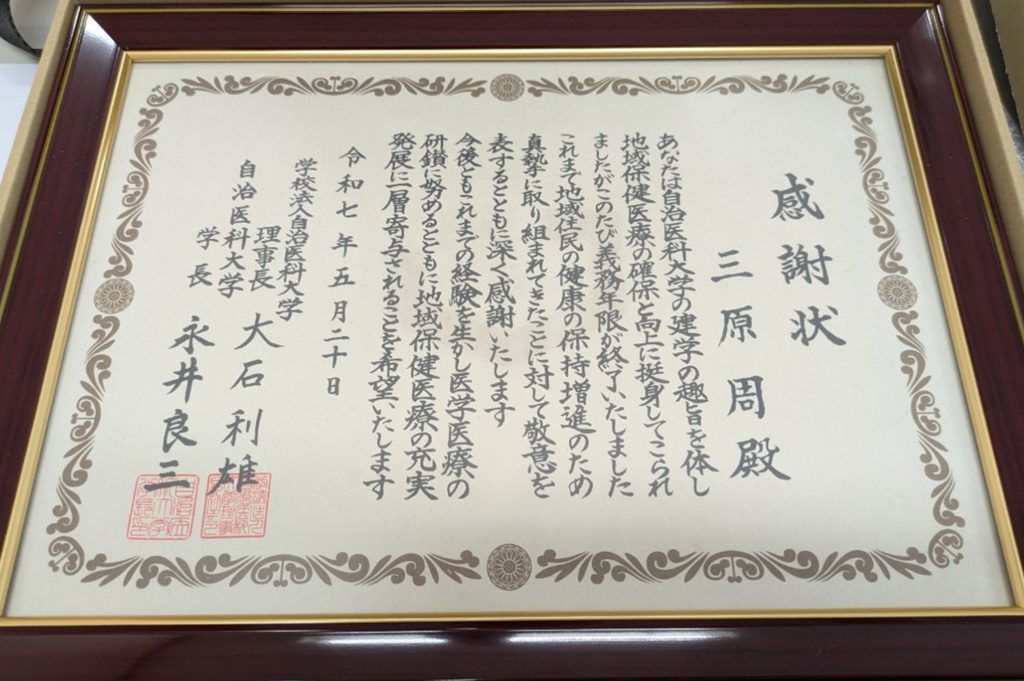 感謝状
三原周殿
あなたは自治医科大学の建学の趣旨を体し
地域保健医療の確保と向上に挺身してこられ
ましたがこのたび義務年限が終了いたしました
これまで地域住民の健康の保持増進のため
真摯に取り組まれてきたことに対して敬意を
表するとともに深く感謝いたします
今後ともこれまでの経験を生かし医学医療の
研鑽に努めるとともに地域保健医療の充実
発展に一層寄与されることを希望いたします
令和七年五月二十日
学校法人自治医科大学
理事長 大石利雄
自治医科大学
学長 永井良三